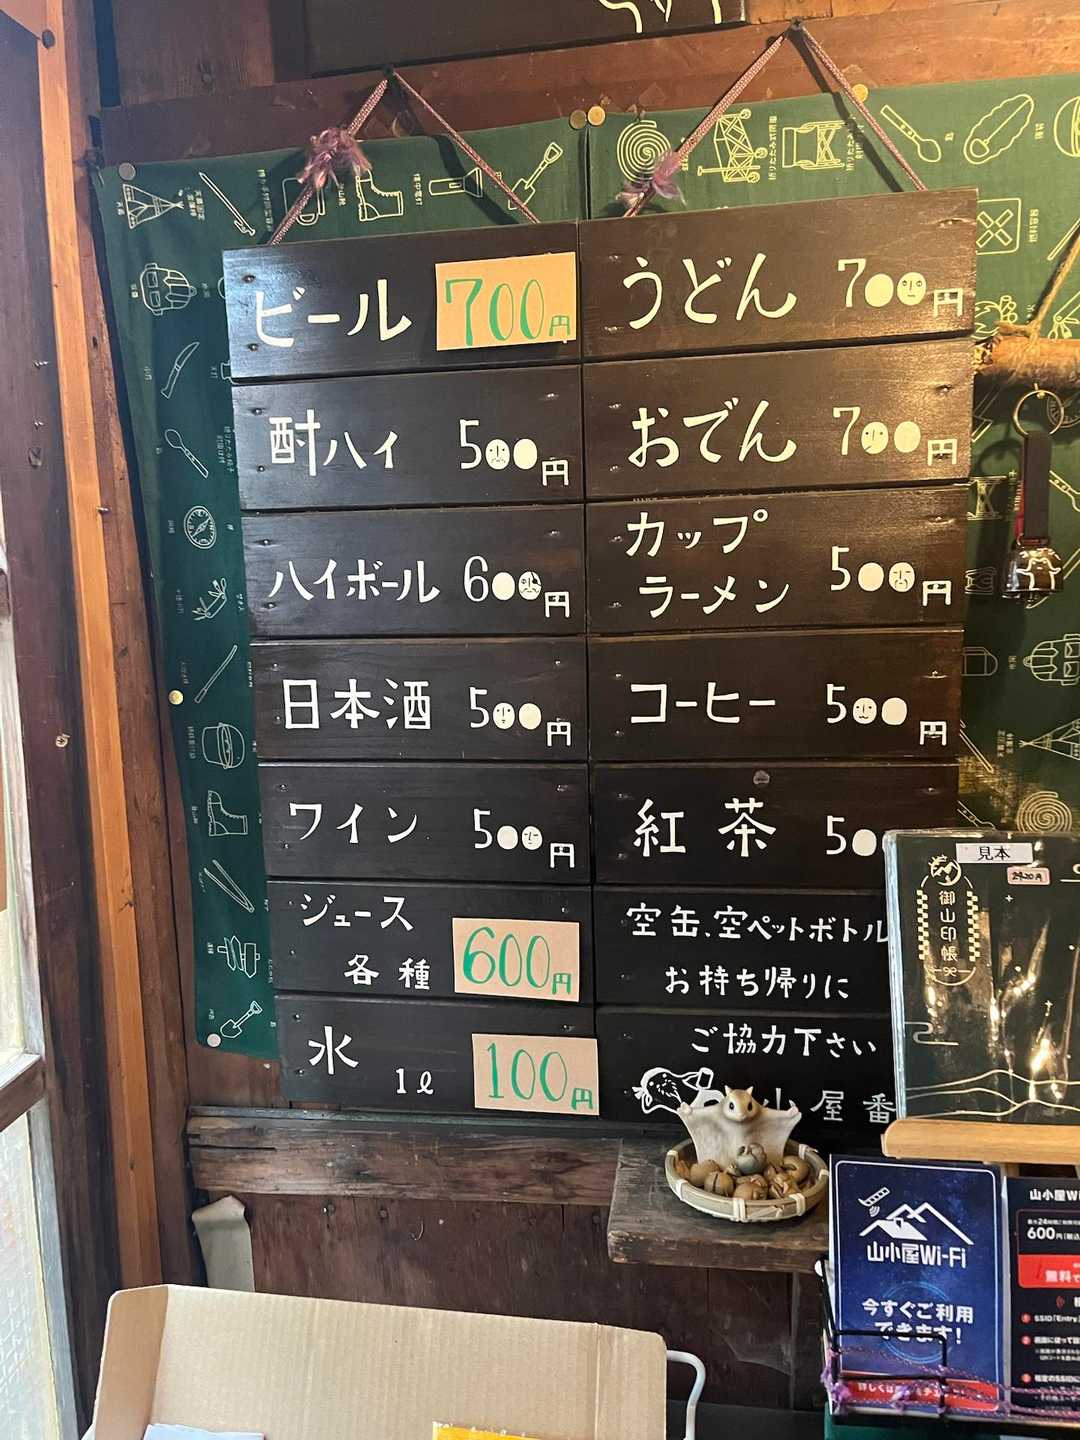 ビール 700円
酎ハイ 500円
ハイボール 600円
日本酒 500円
ワイン 500円
ジュース
各種 600円
水 1ℓ 100円
うどん 700円
おでん 700円
カップ
ラーメン 500円
コーヒー 500円
紅茶 50
空缶、空ペットボトル
お持ち帰りに
ご協力下さい
小屋番
見本
御山印帳
山小屋Wi-Fi
今すぐご利用
できます!
山小屋W
600円
無料で